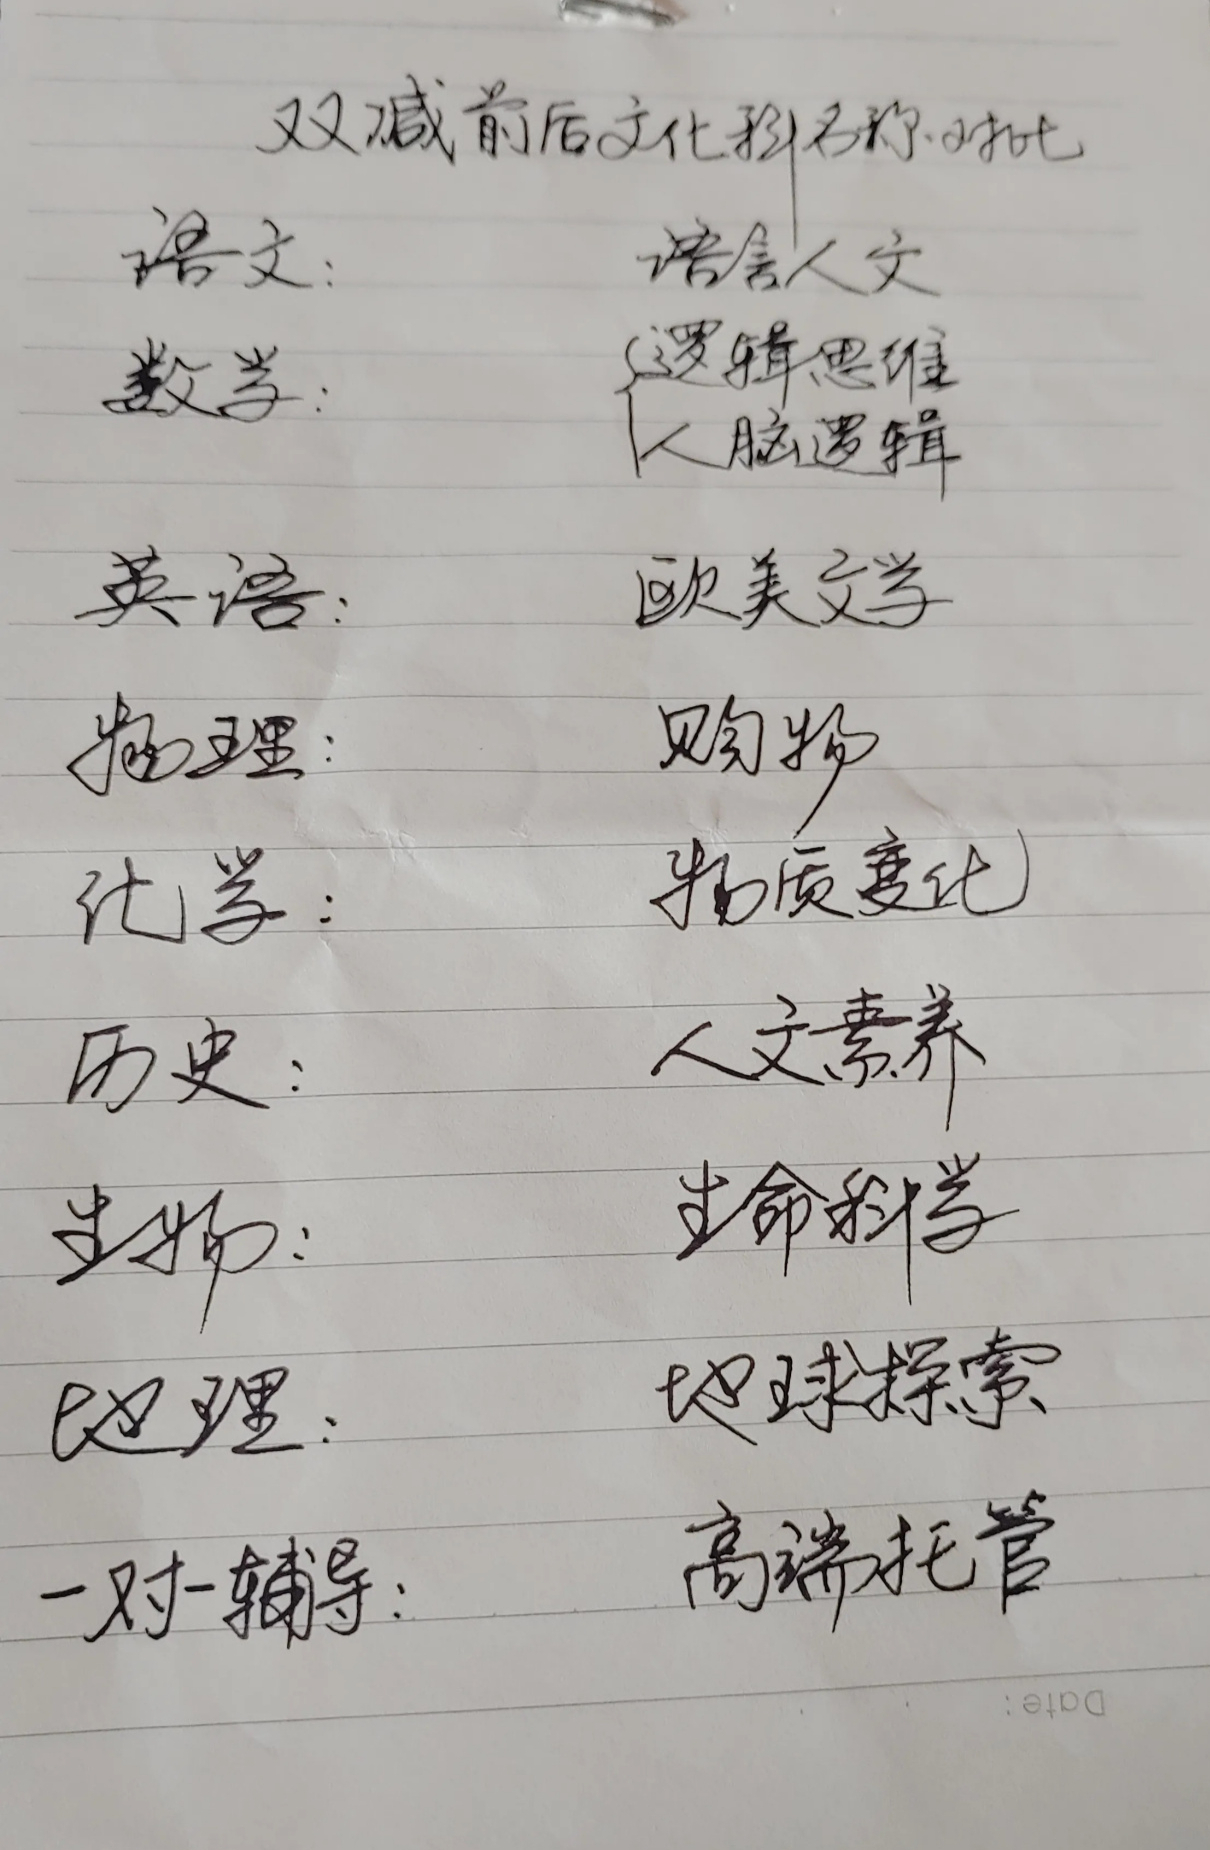 双减前后文化科名称对比
语文： 语言人文
数学： {逻辑思维
人脑逻辑
英语： 欧美文学
物理： 购物
化学： 物质变化
历史： 人文素养
生物： 生命科学
地理： 地球探索
一对一辅导： 高端托管
Date: